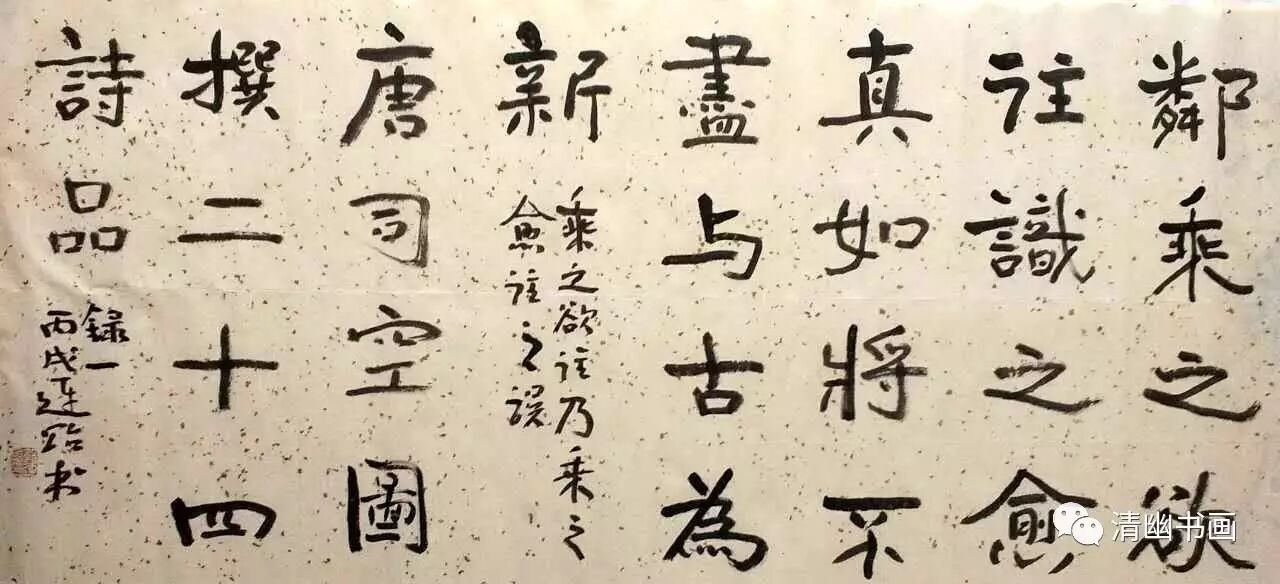 鄰乘之欲
往識之愈
真如將不
盡与古為
新
乘之欲往乃乘之
愈往之誤
唐司空圖
撰二十四
詩品
錄一
丙戌連书
清幽书画